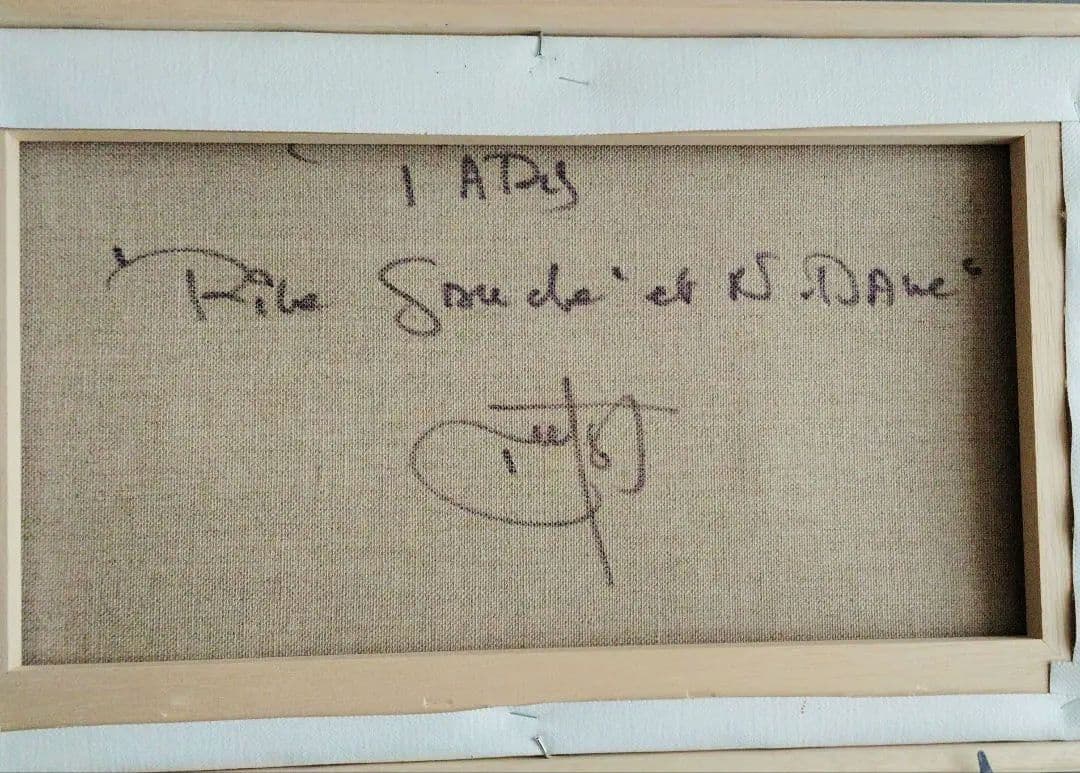 PARIS
"Rive Gauche" et N.DAME"